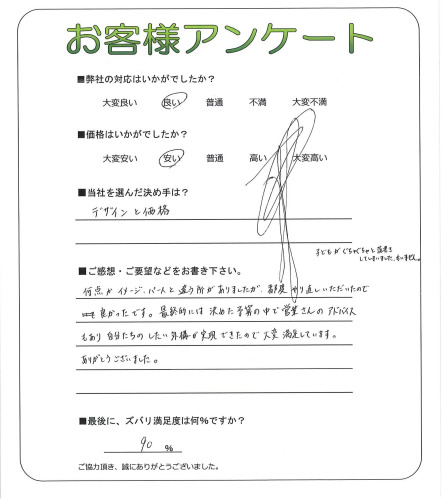 お客様アンケート
■弊社の対応はいかがでしたか？
大変良い 良い 普通 不満 大変不満
■価格はいかがでしたか？
大変安い 安い 普通 高い 大変高い
■当社を選んだ決め手は？
デザインと価格
子どもがぐちゃぐちゃと落書き
してしまいました。すいません。
■ご感想・ご要望などをお書き下さい。
何点かイメージ、パースと違う所がありましたが、都度やり直しいただいたので
良かったです。最終的には決めた予算の中で営業さんのアドバイス
もあり自分たちのしたい外構が実現できたので大変満足しています。
ありがとうございました。
■最後に、ズバリ満足度は何%ですか？
90 %
ご協力頂き、誠にありがとうございました。